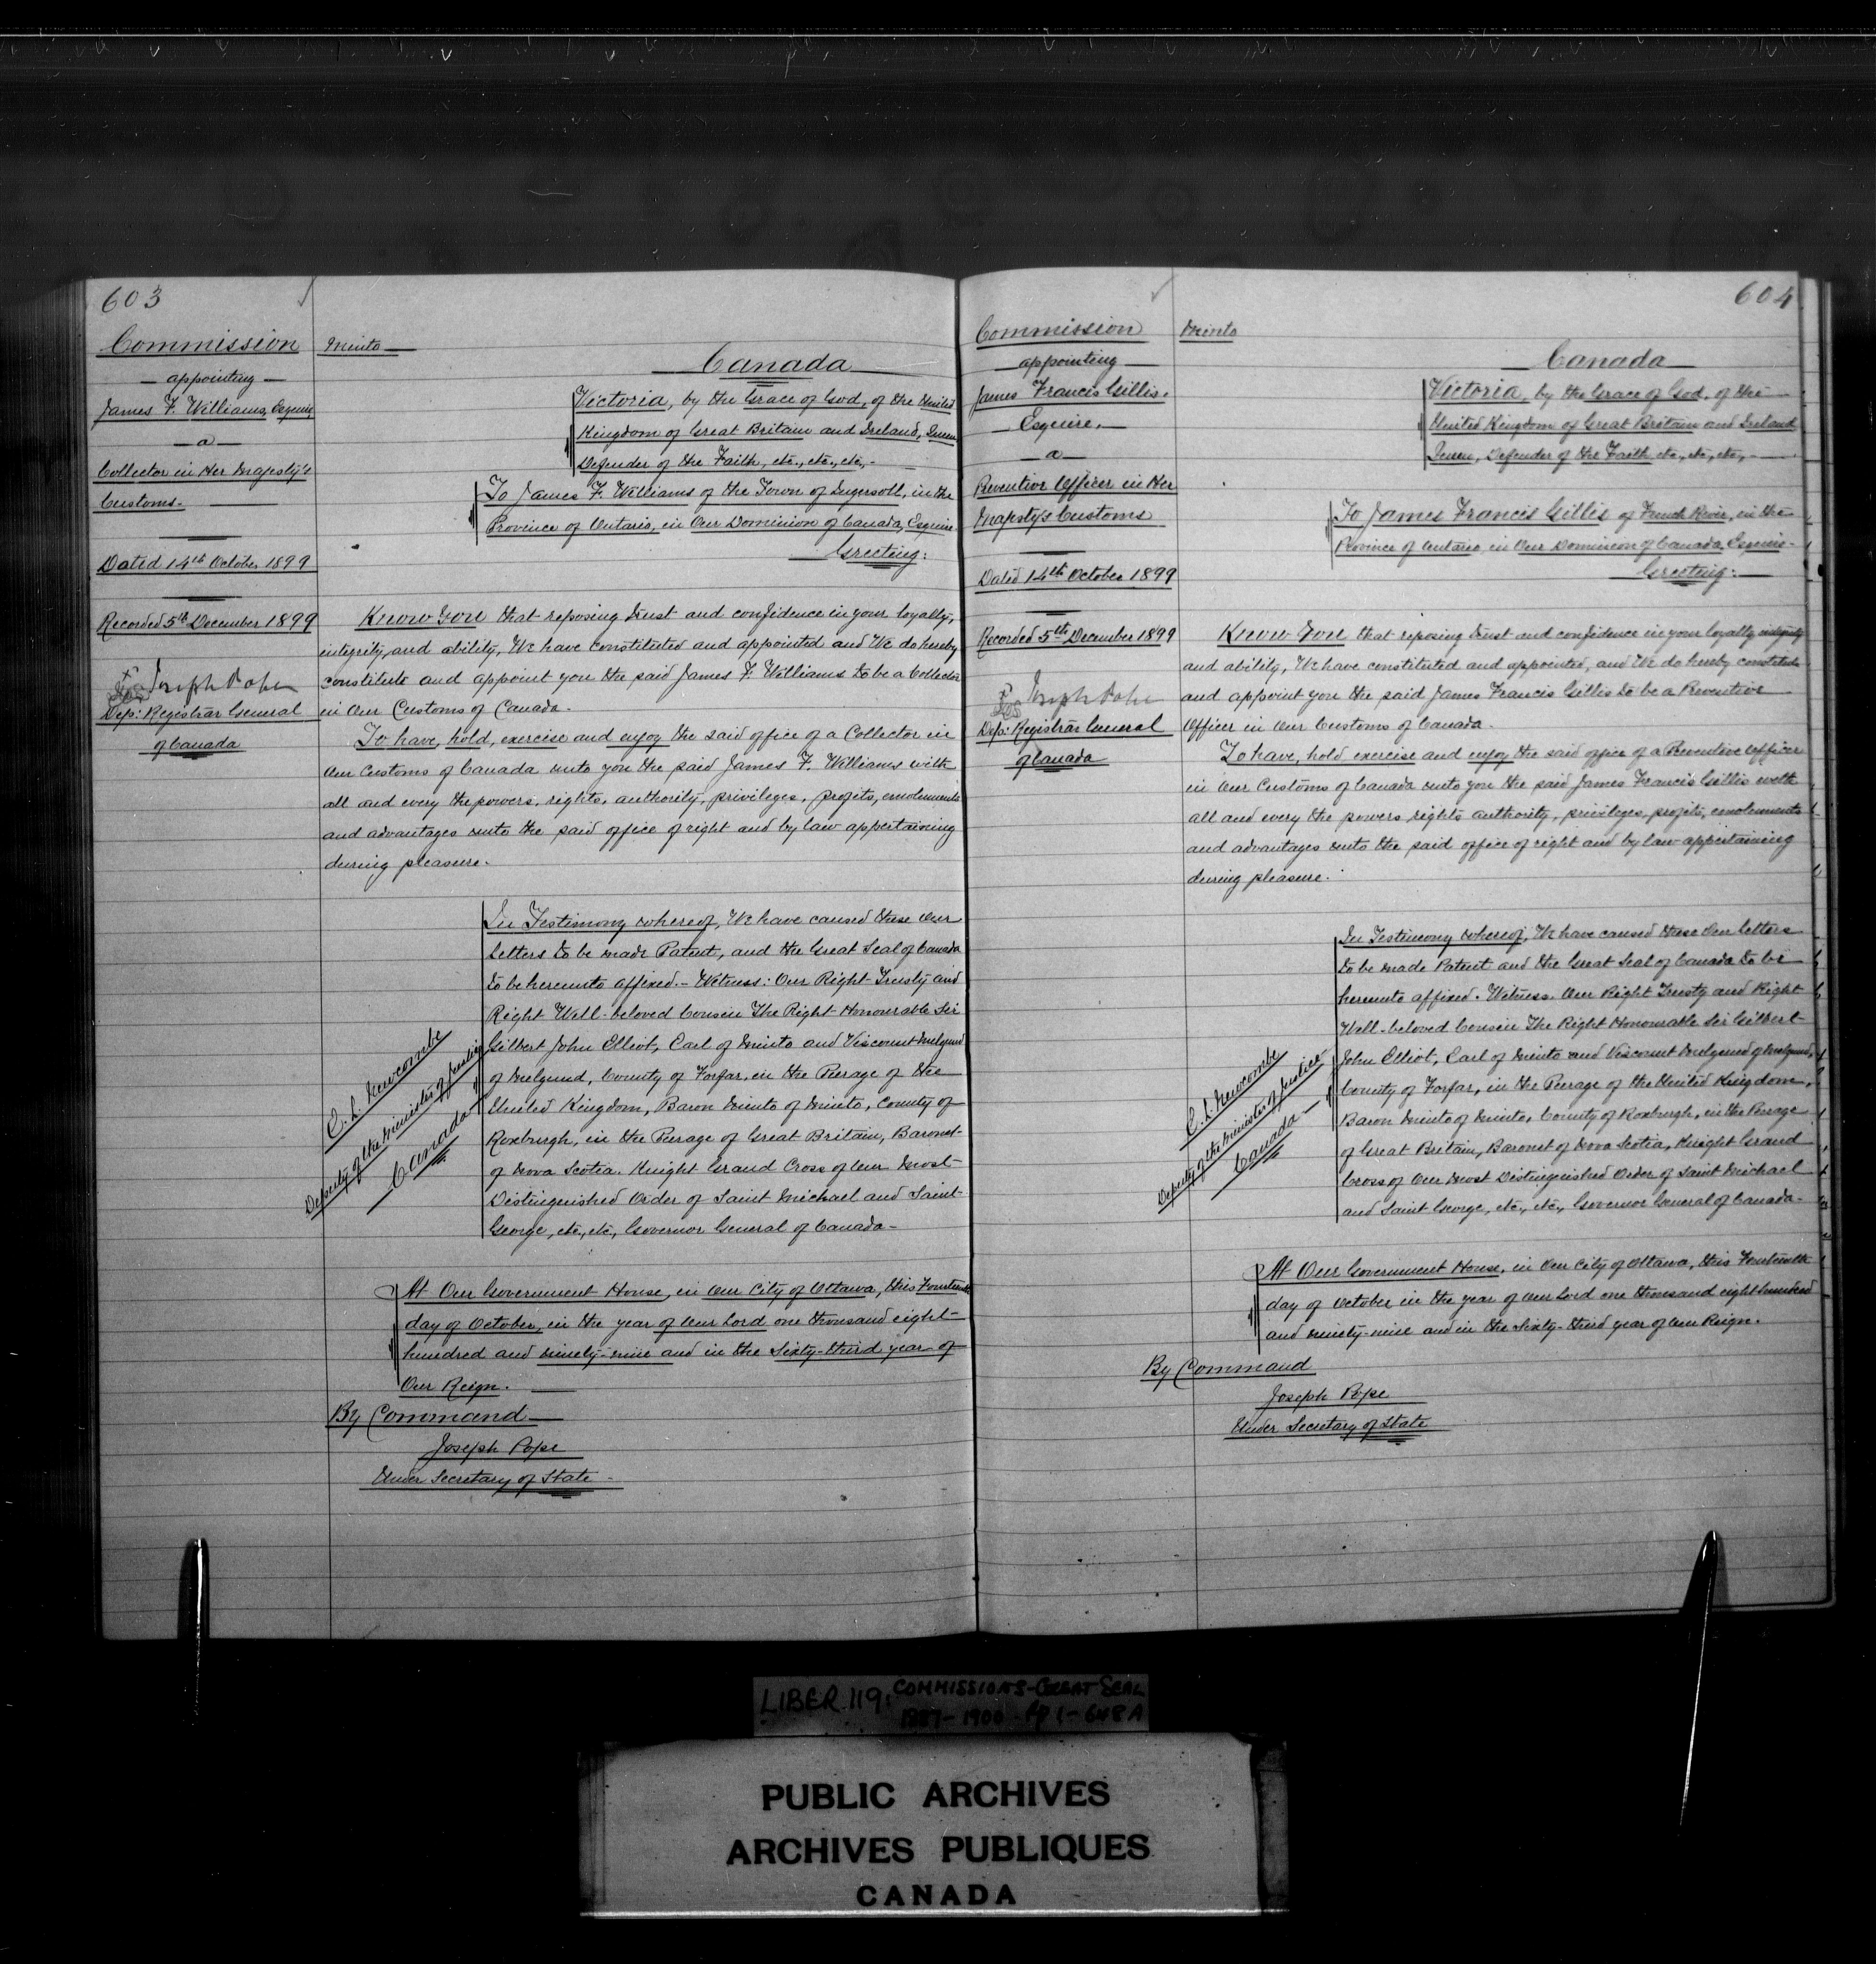 603
Commission
— appointing —
James F. Williams, Esquire
— a —
Collector in Her Majesty's
Customs.
Dated 14th October 1899
Recorded 5th December 1899
Joseph Pope
Dep: Registrar General
of Canada
Minto
Canada
Victoria, by the Grace of God, of the United
Kingdom of Great Britain and Ireland, Queen
Defender of the Faith, etc., etc., etc.,
To James F. Williams of the Town of Ingersoll, in the
Province of Ontario, in Our Dominion of Canada, Esquire
Greeting:
Know You that reposing trust and confidence in your loyalty,
integrity, and ability, We have constituted and appointed and We do hereby
constitute and appoint you the said James F. Williams to be a Collector
in Our Customs of Canada.
To have, hold, exercise and enjoy the said office of a Collector in
Our Customs of Canada unto you the said James F. Williams with
all and every the powers, rights, authority, privileges, profits, emoluments
and advantages unto the said office of right and by law appertaining
during pleasure.
In Testimony whereof, We have caused these Our
Letters to be made Patent, and the Great Seal of Canada
to be hereunto affixed. - Witness: Our Right Trusty and
Right Well-beloved Cousin The Right Honourable Sir
Gilbert John Elliot, Earl of Minto and Viscount Melgund
of Melgund, County of Forfar, in the Peerage of the
United Kingdom, Baron Minto of Minto, County of
Roxburgh, in the Peerage of Great Britain, Baronet
of Nova Scotia. Knight Grand Cross of Our Most
Distinguished Order of Saint Michael and Saint
George, etc., etc., Governor General of Canada -
E. L. Newcombe
Deputy of the Minister of Justice
Canada
At Our Government House, in Our City of Ottawa, this Fourteenth
day of October, in the year of Our Lord one thousand eight
hundred and ninety-nine and in the Sixty-third year of
Our Reign.
By Command
Joseph Pope
Under Secretary of State -
604
Commission
— appointing —
James Francis Gillis.
— Esquire. —
— a —
Preventive Officer in Her
Majesty's Customs
Dated 14th October 1899
Recorded 5th December 1899
Joseph Pope
Dep: Registrar General
of Canada
Minto
Canada
Victoria, by the Grace of God, of the
United Kingdom of Great Britain and Ireland
Queen, Defender of the Faith etc., etc., etc.,
To James Francis Gillis of French River, in the
Province of Ontario, in Our Dominion of Canada, Esquire -
Greeting:
Know You that reposing trust and confidence in your loyalty integrity
and ability, We have constituted and appointed, and We do hereby constitute
and appoint you the said James Francis Gillis to be a Preventive
Officer in Our Customs of Canada.
To have, hold exercise and enjoy the said office of a Preventive Officer
in Our Customs of Canada unto you the said James Francis Gillis with
all and every the powers rights authority, privileges, profits, emoluments
and advantages unto the said office of right and by law appertaining
during pleasure.
In Testimony whereof, We have caused these Our Letters
to be made Patent and the Great Seal of Canada to be
hereunto affixed. Witness. Our Right Trusty and Right
Well-beloved Cousin The Right Honourable Sir Gilbert
John Elliot, Earl of Minto and Viscount Melgund of Melgund,
County of Forfar, in the Peerage of the United Kingdom,
Baron Minto of Minto, County of Roxburgh, in the Peerage
of Great Britain, Baronet of Nova Scotia, Knight Grand
Cross of Our Most Distinguished Order of Saint Michael
and Saint George, etc., etc., Governor General of Canada -
E. L. Newcombe
Deputy of the Minister of Justice
Canada
At Our Government House, in Our City of Ottawa, this Fourteenth
day of October in the year of Our Lord one thousand eight hundred
and ninety-nine and in the Sixty-third year of Our Reign.
By Command
Joseph Pope
Under Secretary of State
LIBER 119: COMMISSIONS-GREAT SEAL
1900 - Pp 1-648A
PUBLIC ARCHIVES
ARCHIVES PUBLIQUES
CANADA